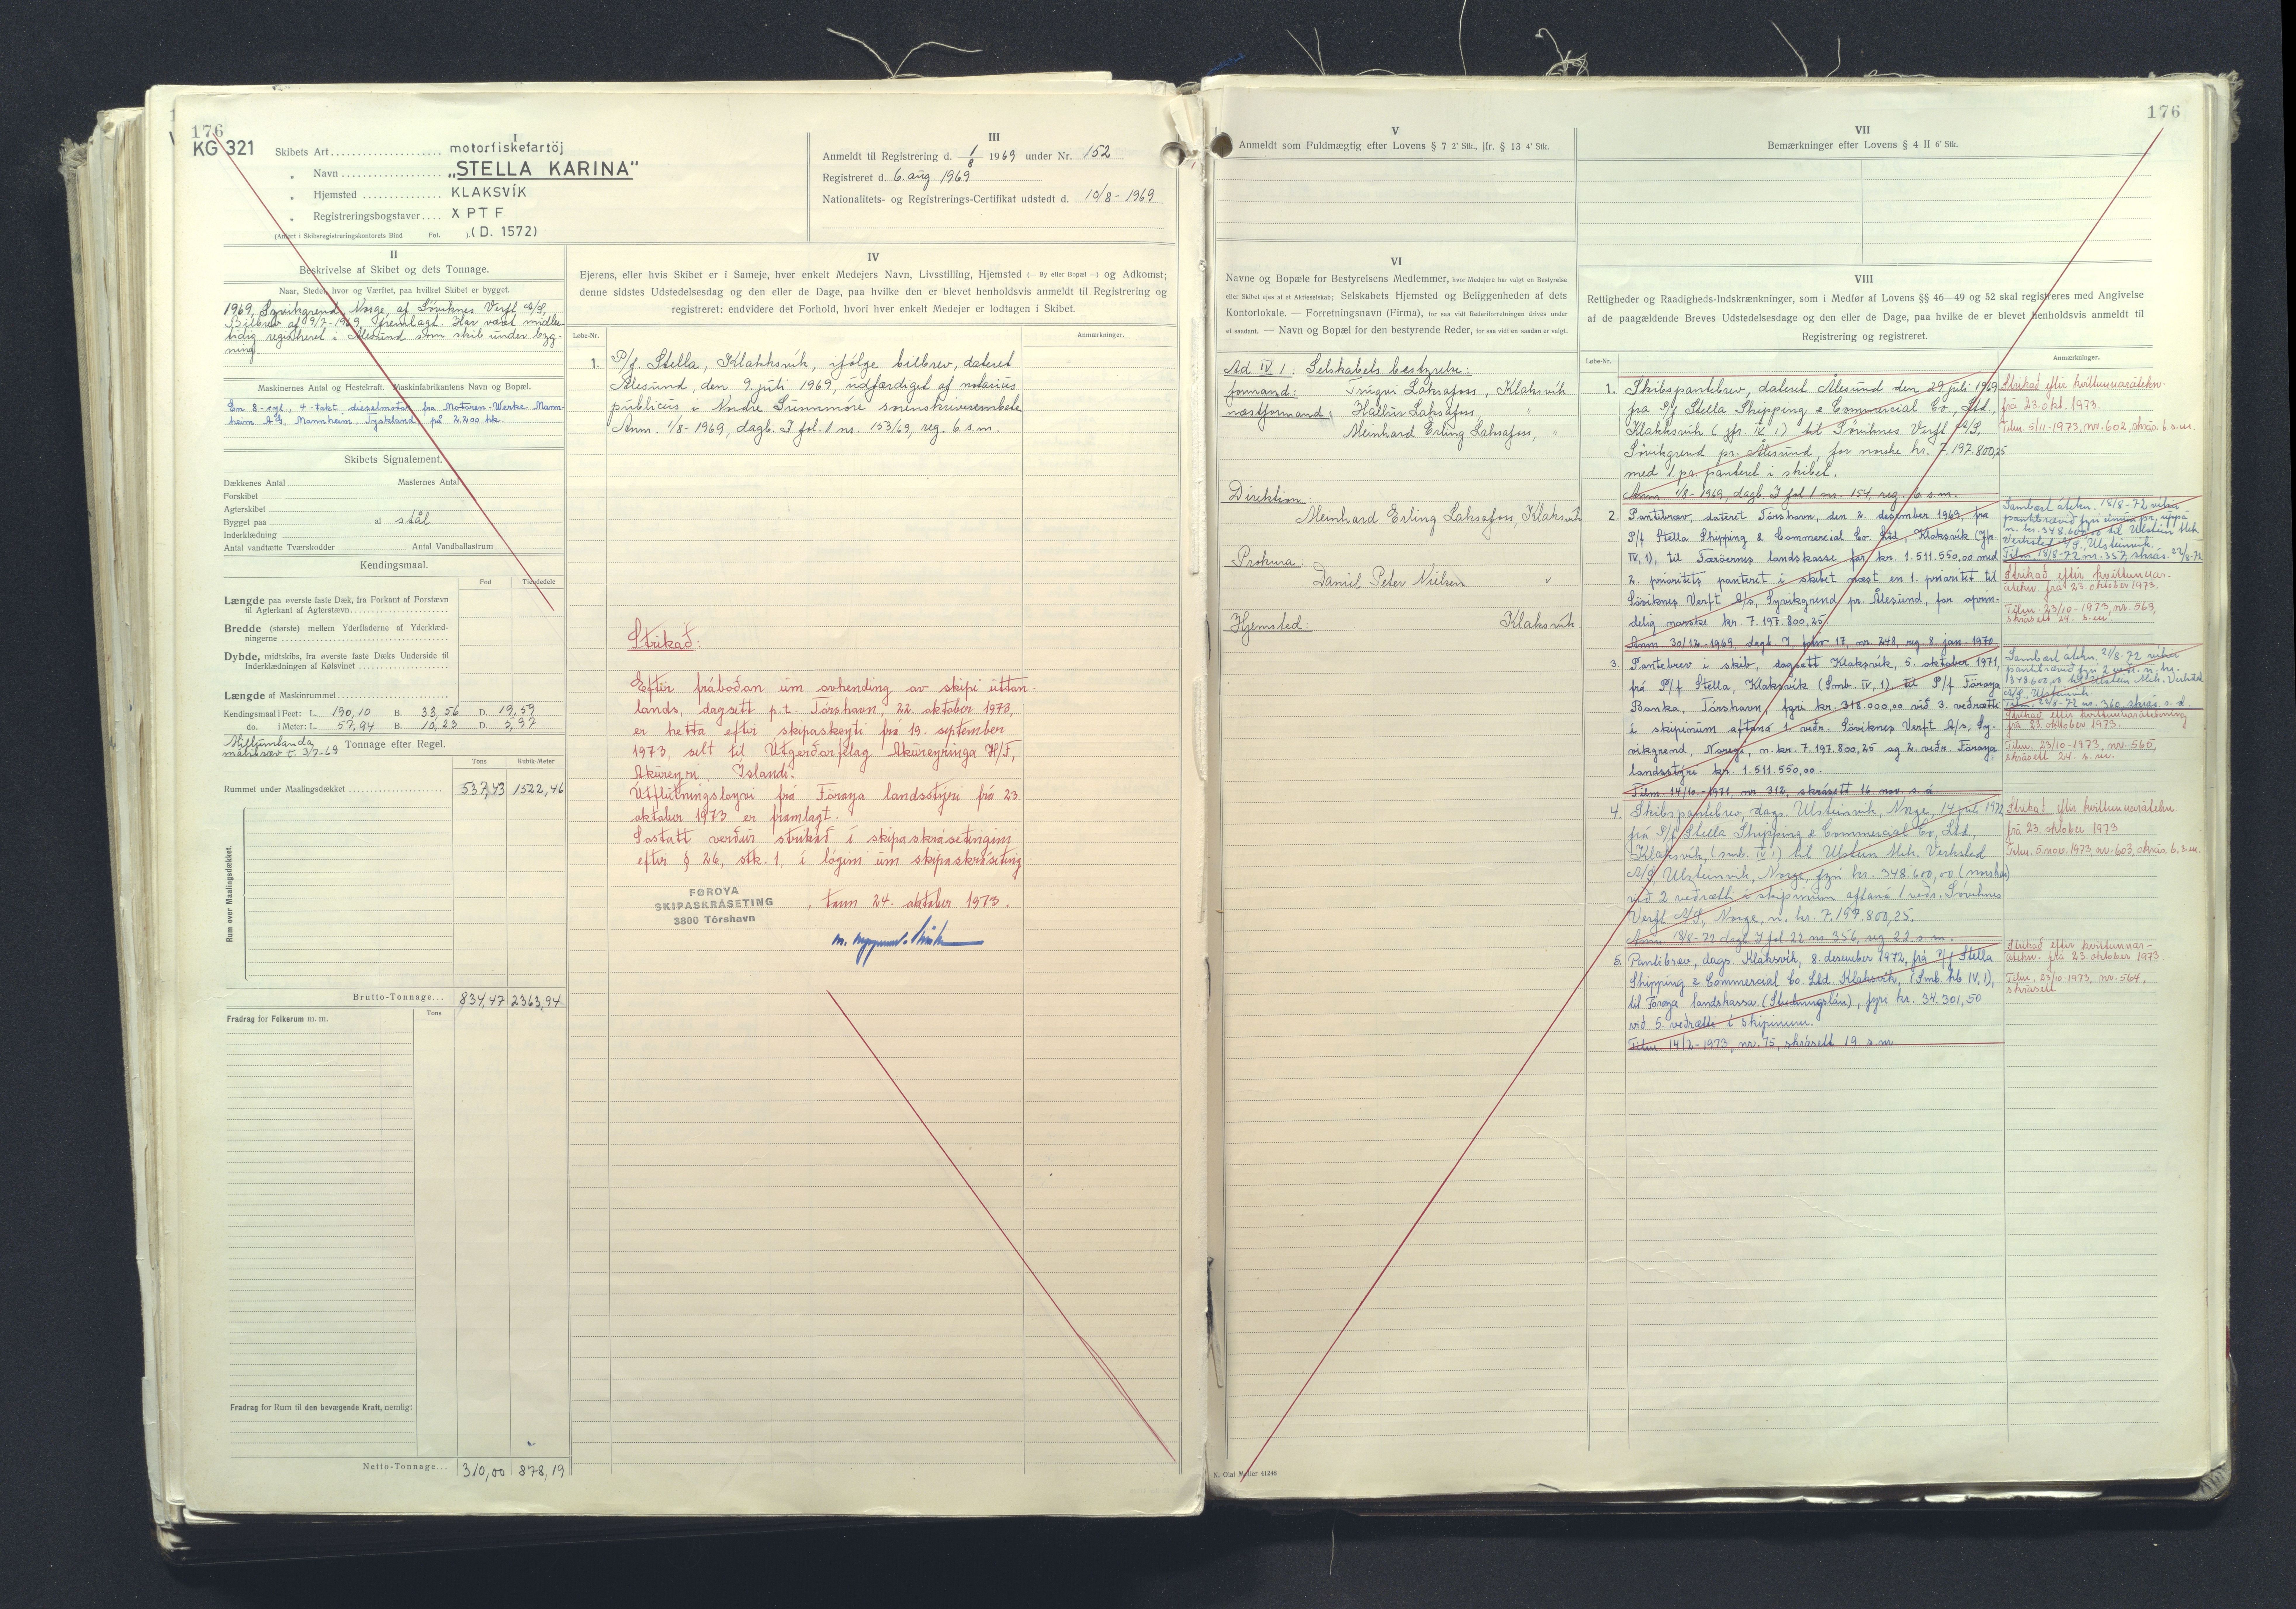 176
KG 321
I
Skibets Art motorfiskefartöj
„ Navn „STELLA KARINA"
„ Hjemsted KLAKSVÍK
„ Registreringsbogstaver XPTF
(Anført i Skibsregistreringskontorets Bind Fol. ). (D. 1572)
III
Anmeldt til Registrering d. 1/8 1969 under Nr. 152
Registreret d. 6. aug. 1969
Nationalitets- og Registrerings-Certifikat udstedt d. 10/8 - 1969
II
Beskrivelse af Skibet og dets Tonnage.
Naar, Steder, hvor og Værftet, paa hvilket Skibet er bygget.
1969, Syvikgrend, Norge, af Søviknes Verft A/S,
Bilbrev af 9/7-1969, fremlagt. Har været midler-
tidig registreret i Ålesund som skib under byg-
ning.
Maskinernes Antal og Hestekraft. Maskinfabrikantens Navn og Bopæl.
En 8-cyl., 4-takt dieselmotor fra Motoren-Werke Mann-
heim AG, Mannheim, Tyskland på 2.200 hk.
Skibets Signalement.
Dækkenes Antal Masternes Antal
Forskibet
Agterskibet
Bygget paa af stål
Inderklædning
Antal vandtætte Tværskodder Antal Vandballastrum
Kendingsmaal.
Fod Tiendedele
Længde paa øverste faste Dæk, fra Forkant af Forstævn
til Agterkant af Agterstævn
Bredde (største) mellem Yderfladerne af Yderklæd-
ningerne
Dybde, midtskibs, fra øverste faste Dæks Underside til
Inderklædningen af Kølsvinet
Længde af Maskinrummet
Kendingsmaal i Feet: L. 190,10 B. 33,56 D. 19,59
do. i Meter: L. 57,94 B. 10,23 D. 5,97
Millumlanda
málibræv t. 3/7-69 Tonnage efter Regel.
Tons Kubik-Meter
Rummet under Maalingsdækket 537,43 1522,46
Rum over Maalingsdækket.
Brutto-Tonnage... 834,47 2363,94
Fradrag for Folkerum m. m. Tons
Fradrag for Rum til den bevægende Kraft, nemlig:
Netto-Tonnage... 310,00 878,19
IV
Ejerens, eller hvis Skibet er i Sameje, hver enkelt Medejers Navn, Livsstilling, Hjemsted (— By eller Bopæl —) og Adkomst;
denne sidstes Udstedelsesdag og den eller de Dage, paa hvilke den er blevet henholdsvis anmeldt til Registrering og
registreret: endvidere det Forhold, hvori hver enkelt Medejer er lodtagen i Skibet.
Løbe-Nr. Anmærkninger.
1. P/f. Stella, Klakksvík, ifølge bilbrev, dateret
Ålesund, den 9. juli 1969, udfærdiget af notarius
publicus i Nordre Sunnmöre sorenskriverembete
Anm. 1/8-1969, dagb. I fol. 1 nr. 153/69, reg. 6. s.m.
Strikað:
Eftir fráboðan um avhending av skipi uttan-
lands, dagsett p.t. Tórshavn, 22. oktober 1973,
er hetta eftir skipaskeyti frá 19. september
1973, selt til Útgerðarfelag Akureyringa H/F,
Akureyri, Íslandi.
Útflutningsloyvi frá Føroya landsstýri frá 23.
oktober 1973 er framlagt.
Sostatt verður strikað í skipaskrásetingini
eftir § 26, stk. 1, í lógini um skipaskráseting
FØROYA
SKIPASKRÁSETING
3800 Tórshavn
, tann 24. oktober 1973.
176
V
Anmeldt som Fuldmægtig efter Lovens § 7 2' Stk., jfr. § 13 4' Stk.
VI
Navne og Bopæle for Bestyrelsens Medlemmer, hvor Medejere har valgt en Bestyrelse
eller Skibet ejes af et Aktieselskab; Selskabets Hjemsted og Beliggenheden af dets
Kontorlokale. — Forretningsnavn (Firma), for saa vidt Rederiforretningen drives under
et saadant. — Navn og Bopæl for den bestyrende Reder, for saa vidt en saadan er valgt.
Ad IV 1: Selskabets bestyrelse:
formand: Tryggvi Laksafoss, Klaksvík
næstformand: Hallur Laksafoss, "
Meinhard Erling Laksafoss, "
Direktion:
Meinhard Erling Laksafoss, Klaksvík
Prokura:
Daniel Peter Nielsen "
Hjemsted: Klaksvík
VII
Bemærkninger efter Lovens § 4 II 6' Stk.
VIII
Rettigheder og Raadigheds-Indskrænkninger, som i Medfør af Lovens §§ 46—49 og 52 skal registreres med Angivelse
af de paagældende Breves Udstedelsesdage og den eller de Dage, paa hvilke de er blevet henholdsvis anmeldt til
Registrering og registreret.
Løbe-Nr. Anmærkninger.
1. Skibspantebrev, dateret Ålesund den 29. juli 1969
fra P/f Stella Shipping & Commercial Co., Ltd.,
Klakksvík (jfr. IV 1) til Søviknes Verft A/S,
Søvikgrend pr. Ålesund, for norske kr. 7.197.800,25
med 1. pr. panteret i skibet.
Anm. 1/8-1969, dagb. I fol 1 nr. 154, reg. 6 s.m.
Strikað eftir kvittunnarátekn.
frá 23. okt. 1973.
Tilm. 5/11-1973, nr. 602, skrás. 6. s.m.
2. Pantebrev, dateret Tórshavn, den 2. desember 1969, fra
P/f Stella Shipping & Commercial Co. Ltd., Klaksvík (jfr.
IV, 1), til Færöernes landskasse for kr. 1.511.550,00 med
2. prioritets panteret i skibet næst en 1. prioritet til
Söviknes Verft A/s, Syvikgrend pr. Ålesund, for oprin-
delig norske kr. 7.197.800,25
Anm. 30/12-1969, dagb. I, folio 17, nr. 248, reg. 8. jan. 1970
Sambært átekn. 18/8-72 víkir
pantibrævið fyri einum pr. uppá
n. kr. 348.600,00 til Ulstein Mek.
Verksted A/S, Ulsteinvik.
Tilm. 18/8-72 nr. 357, skrás. 22/8-72
Strikað eftir kvittunnar-
átekn. frá 23. oktober 1973.
Tilm. 23/10-1973, nr. 563,
skrásett 24. s.m.
3. Pantebrev i skib, dagsett Klaksvík, 5. oktober 1971,
frá P/f Stella, Klaksvík (Smb. IV, 1) til P/f Föroya
Banka, Tórshavn, fyri kr. 318.000,00 við 3. veðrætti
í skipinum aftaná 1. veðr. Söviknes Verft A/s, Sy-
vikgrend, Noregi, n.kr. 7.197.800,25 og 2. veðr. Föroya
landsstýri kr. 1.511.550,00.
Tilm. 14/10-1971, nr. 312, skrásett 16. nov. s.á.
Sambært átekn. 21/8-72 víkur
pantibrævið fyri 2. veðr. n. kr.
348.600,00 til Ulstein Mek. Verksted
A/S, Ulsteinvik.
Tilm. 22/8-72 nr. 360, skrás. s.d.
Strikað eftir kvittunnarátekning
frá 23. oktober 1973.
Tilm. 23/10-1973, nr. 565,
skrásett 24. s.m.
4. Skibspantebrev, dags. Ulsteinvik, Norge, 14. juli 1972
frá P/f Stella Shipping & Commercial Co, Ltd.,
Klaksvík, (smb. IV 1) til Ulstein Mek. Verksted
A/S, Ulsteinvik, Norge, fyri kr. 348.600,00 (norskar)
við 2 veðrætti í skipinum aftaná 1 veðr. Søviknes
Verft A/S, Norge, n. kr. 7.197.800,25.
Anm. 18/8-72 dagb. I fol. 22 nr. 356, reg. 22. s.m.
Strikað eftir kvittunnarátekn
frá 23. oktober 1973
Tilm. 5. nov. 1973, nr. 603, skrás. 6. s.m.
5. Pantibrev, dags. Klaksvík, 8. desember 1972, frá P/f Stella
Shipping & Commercial Co. Ltd. Klaksvík, (Smb. kb IV, 1),
til Føroya landskassa (Studningslán), fyri kr. 34.301,50
við 5. veðrætti í skipinum.
Tilm. 14/2-1973, nr. 75, skrásett 19 s.m.
Strikað eftir kvittunnar-
átekn. frá 23. oktober 1973
Tilm. 23/10-1973, nr. 564,
skrásett
N. Olaf Møller 41248